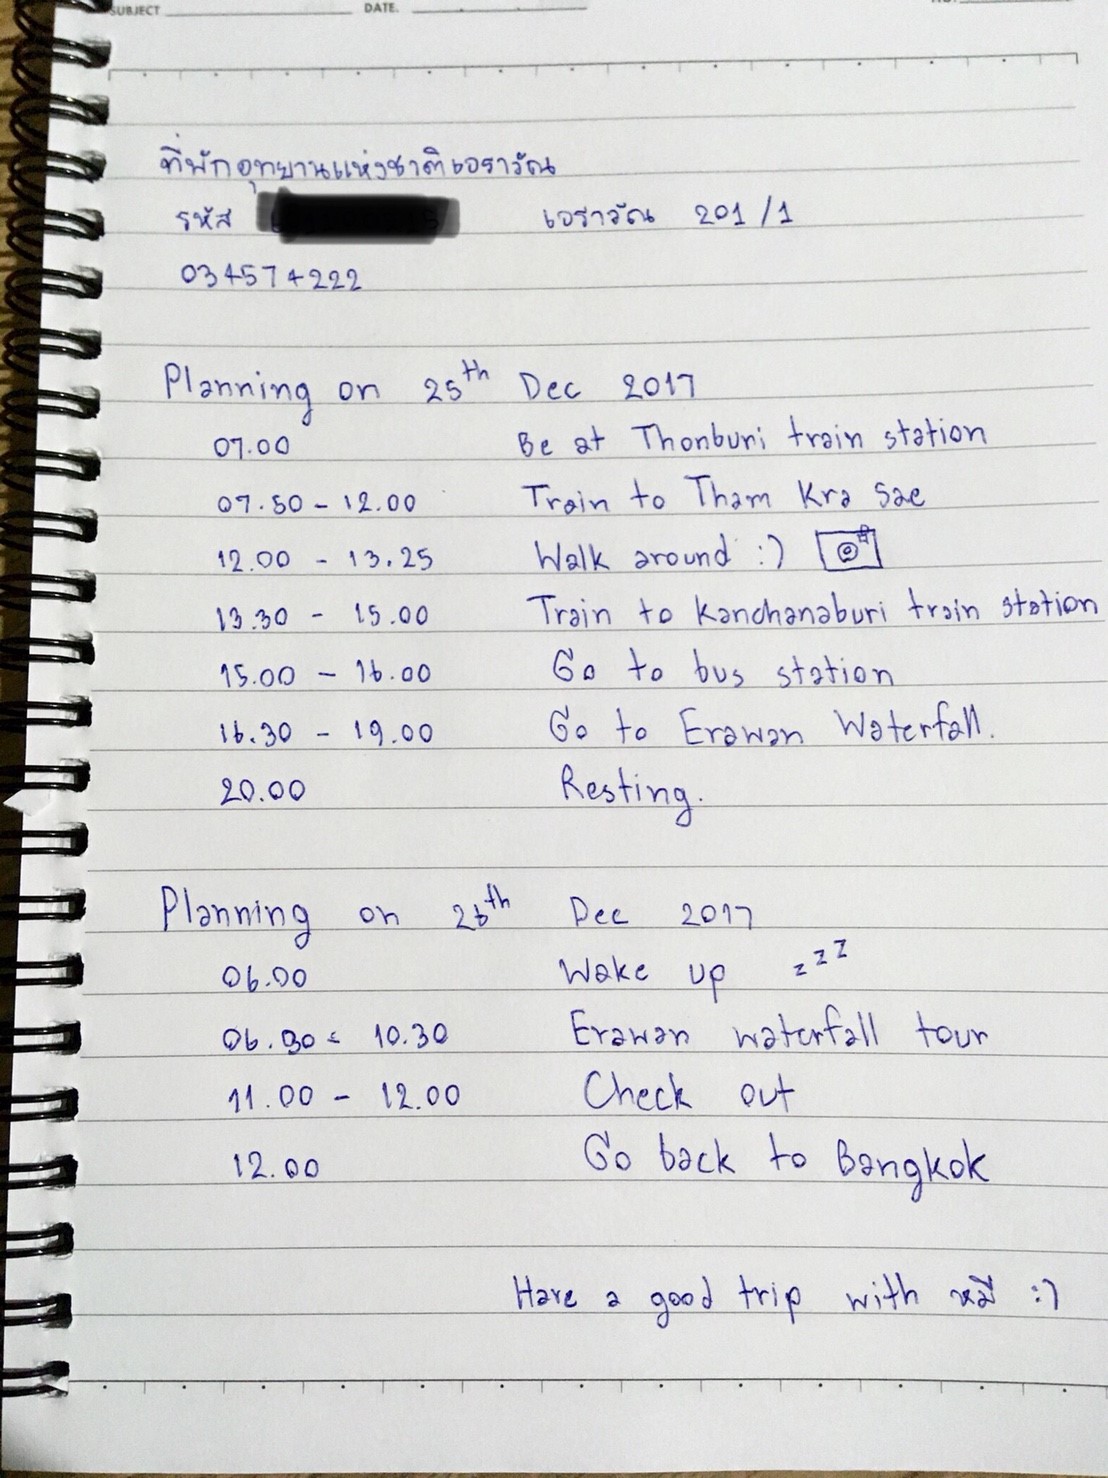 SUBJECT DATE.
ที่พักอุทยานแห่งชาติเอราวัณ
รหัส เอราวัณ 201/1
034574222
Planning on 25th Dec 2017
07.00 Be at Thonburi train station
07.50 - 12.00 Train to Tham Kra Sae
12.00 - 13.25 Walk around :)
13.30 - 15.00 Train to Kanchanaburi train station
15.00 - 16.00 Go to bus station
16.30 - 19.00 Go to Erawan Waterfall.
20.00 Resting.
Planning on 26th Dec 2017
06.00 Wake up zzZ
06.30 - 10.30 Erawan waterfall tour
11.00 - 12.00 Check out
12.00 Go back to Bangkok
Have a good trip with หมี :)